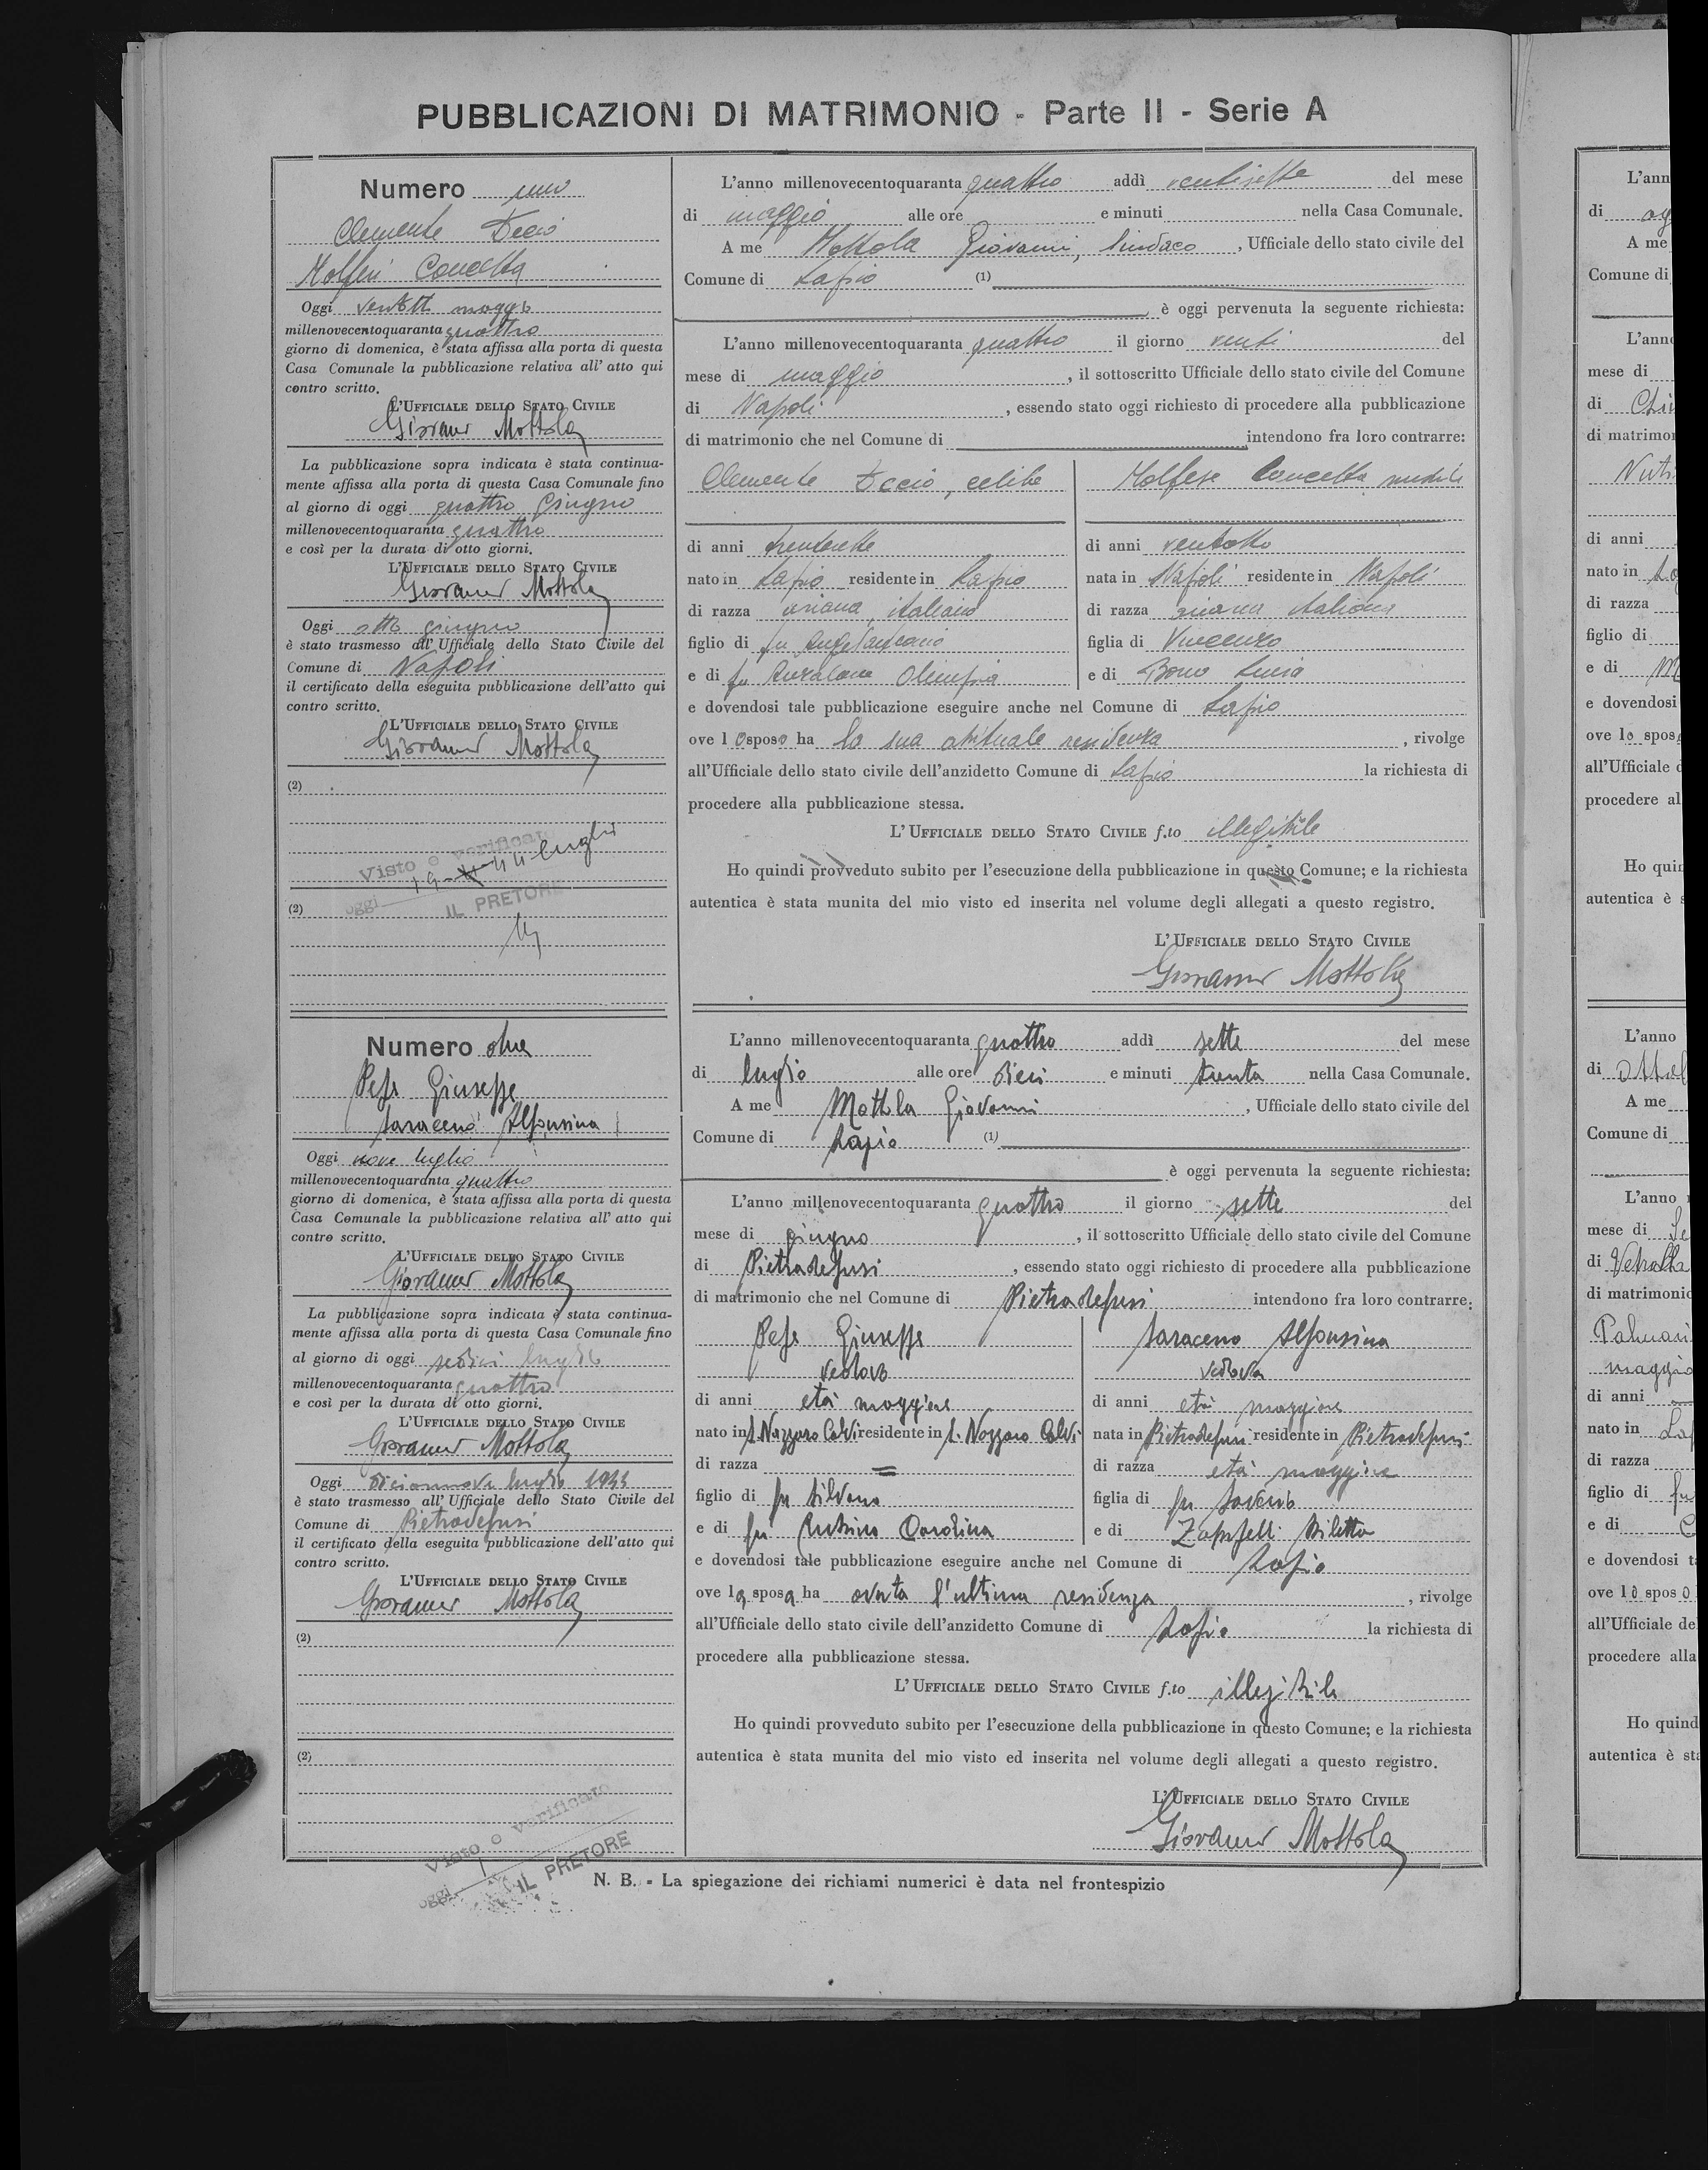 PUBBLICAZIONI DI MATRIMONIO - Parte II - Serie A
Numero uno
Clemente Decio
Molfesi Concetta
Oggi ventotto maggio
millenovecentoquaranta quattro
giorno di domenica, è stata affissa alla porta di questa
Casa Comunale la pubblicazione relativa all' atto qui
contro scritto.
L'UFFICIALE DELLO STATO CIVILE
Giovanni Mottola
La pubblicazione sopra indicata è stata continua-
mente affissa alla porta di questa Casa Comunale fino
al giorno di oggi quattro Giugno
millenovecentoquaranta quattro
e così per la durata di otto giorni.
L'UFFICIALE DELLO STATO CIVILE
Giovanni Mottola
Oggi otto giugno
è stato trasmesso all' Ufficiale dello Stato Civile del
Comune di Napoli
il certificato della eseguita pubblicazione dell'atto qui
contro scritto.
L'UFFICIALE DELLO STATO CIVILE
Giovanni Mottola
(2)
Visto e verificato
oggi 19 44 luglio
IL PRETORE
(2)
L'anno millenovecentoquaranta quattro addì ventisette del mese
di maggio alle ore e minuti nella Casa Comunale.
A me Mottola Giovanni, Sindaco, Ufficiale dello stato civile del
Comune di Lapio (1)
è oggi pervenuta la seguente richiesta:
L'anno millenovecentoquaranta quattro il giorno venti del
mese di maggio, il sottoscritto Ufficiale dello stato civile del Comune
di Napoli, essendo stato oggi richiesto di procedere alla pubblicazione
di matrimonio che nel Comune di intendono fra loro contrarre:
Clemente Decio, celibe
di anni trentasette
nato in Lapio residente in Lapio
di razza ariana, italiano
figlio di fu
e di fu Olimpia
Molfese Concetta nubile
di anni ventotto
nata in Napoli residente in Napoli
di razza ariana italiana
figlia di Vincenzo
e di Bono Luisa
e dovendosi tale pubblicazione eseguire anche nel Comune di Lapio
ove lo sposo ha la sua abituale residenza, rivolge
all'Ufficiale dello stato civile dell'anzidetto Comune di Lapio la richiesta di
procedere alla pubblicazione stessa.
L'UFFICIALE DELLO STATO CIVILE f.to illegibile
Ho quindi provveduto subito per l'esecuzione della pubblicazione in questo Comune; e la richiesta
autentica è stata munita del mio visto ed inserita nel volume degli allegati a questo registro.
L'UFFICIALE DELLO STATO CIVILE
Giovanni Mottola
Numero due
Pepe Giuseppe
Saraceno Alfonsina
Oggi nove luglio
millenovecentoquaranta quattro
giorno di domenica, è stata affissa alla porta di questa
Casa Comunale la pubblicazione relativa all' atto qui
contro scritto.
L'UFFICIALE DELLO STATO CIVILE
Giovanni Mottola
La pubblicazione sopra indicata è stata continua-
mente affissa alla porta di questa Casa Comunale fino
al giorno di oggi sedici luglio
millenovecentoquaranta quattro
e così per la durata di otto giorni.
L'UFFICIALE DELLO STATO CIVILE
Giovanni Mottola
Oggi diciannove luglio 1944
è stato trasmesso all' Ufficiale dello Stato Civile del
Comune di Pietradefusi
il certificato della eseguita pubblicazione dell'atto qui
contro scritto.
L'UFFICIALE DELLO STATO CIVILE
Giovanni Mottola
(2)
(2)
Visto e verificato
oggi
IL PRETORE
L'anno millenovecentoquaranta quattro addì sette del mese
di luglio alle ore dieci e minuti trenta nella Casa Comunale.
A me Mottola Giovanni, Ufficiale dello stato civile del
Comune di Lapio (1)
è oggi pervenuta la seguente richiesta:
L'anno millenovecentoquaranta quattro il giorno sette del
mese di giugno, il sottoscritto Ufficiale dello stato civile del Comune
di Pietradefusi, essendo stato oggi richiesto di procedere alla pubblicazione
di matrimonio che nel Comune di Pietradefusi intendono fra loro contrarre:
Pepe Giuseppe
vedovo
di anni età maggiore
nato in S. Nazzaro Calvi residente in S. Nazzaro Calvi
di razza =
figlio di fu Silvano
e di fu Carolina
Saraceno Alfonsina
vedova
di anni età maggiore
nata in Pietradefusi residente in Pietradefusi
di razza età maggiore
figlia di fu Saverio
e di Zampelli Diletta
e dovendosi tale pubblicazione eseguire anche nel Comune di Lapio
ove la sposa ha avuta l'ultima residenza, rivolge
all'Ufficiale dello stato civile dell'anzidetto Comune di Lapio la richiesta di
procedere alla pubblicazione stessa.
L'UFFICIALE DELLO STATO CIVILE f.to illegibile
Ho quindi provveduto subito per l'esecuzione della pubblicazione in questo Comune; e la richiesta
autentica è stata munita del mio visto ed inserita nel volume degli allegati a questo registro.
L'UFFICIALE DELLO STATO CIVILE
Giovanni Mottola
N. B. - La spiegazione dei richiami numerici è data nel frontespizio